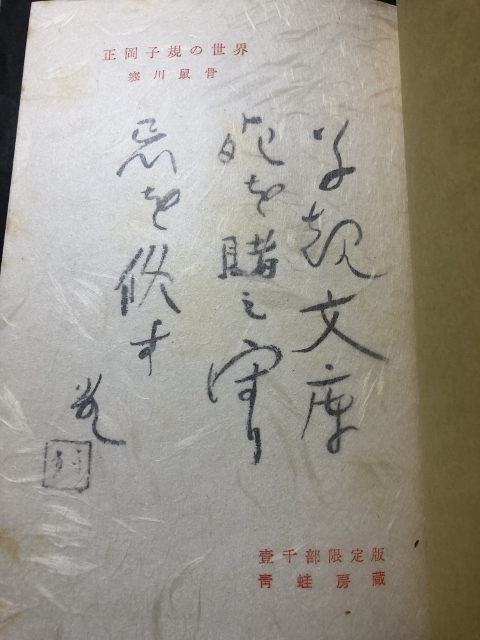 正岡子規の世界
寒川鼠骨
子規文庫
死を賭之守り
忌を修す
壹千部限定版
靑蛙房藏